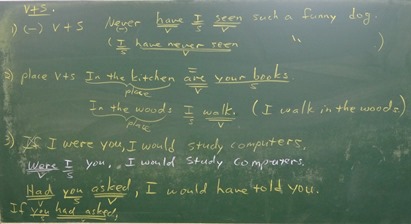 V+S.
1) (-) V+S Never have I seen such a funny dog.
V S V
(I have never seen " )
S V
2) place V+S In the kitchen are your books.
place V S
In the woods I walk. (I walk in the woods)
place S V
3) If I were you, I would study computers.
Were I you, I would study computers.
V S
Had you asked, I would have told you.
V S V
If you had asked,
S V